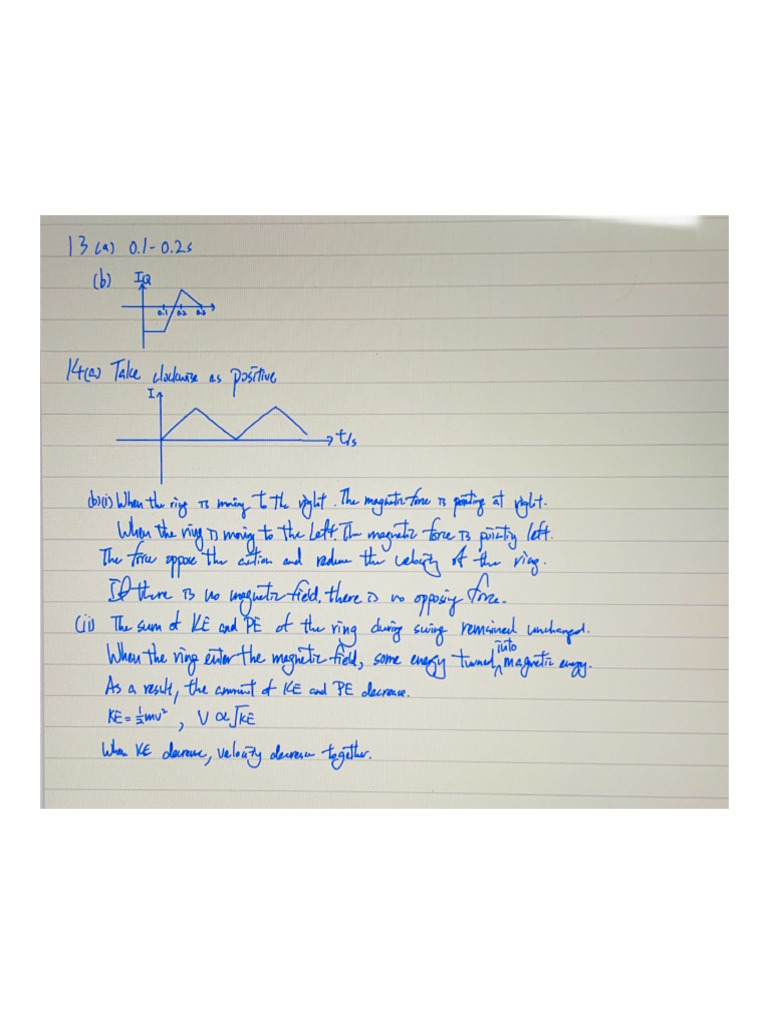 13 (a) 0.1-0.2s
(b) IQ
0.1 0.2 0.3
14(a) Take clockwise as positive
I
t/s
(b)(i) When the ring is moving to the right. The magnetic force is pointing at right.
When the ring is moving to the left. The magnetic force is pointing left.
The force oppose the action and reduce the velocity of the ring.
If there is no magnetic field, there is no opposing force.
(ii) The sum of KE and PE of the ring during swing remained unchanged.
When the ring enter the magnetic field, some energy turned into magnetic energy.
As a result, the amount of KE and PE decrease.
KE = ½mv² , V ∝ √KE
When KE decrease, velocity decrease together.